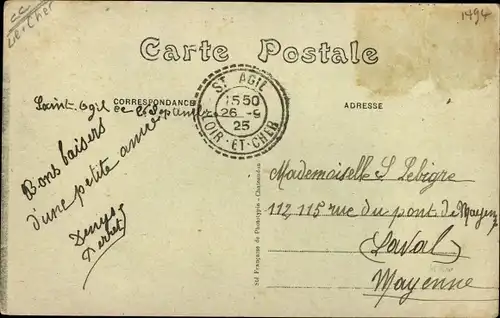 1494
Carte Postale
CORRESPONDANCE
ADRESSE
ST AGIL
15 50
26 - 9
25
LOIR-ET-CHER
Saint. Agil
Bons baisers
d'une petite amie
Denyse
Mademoiselle S Lebigre
112, 115 rue du pont de Mayenne
Laval
Mayenne
Sté Française de Phototypie - Chateaudun